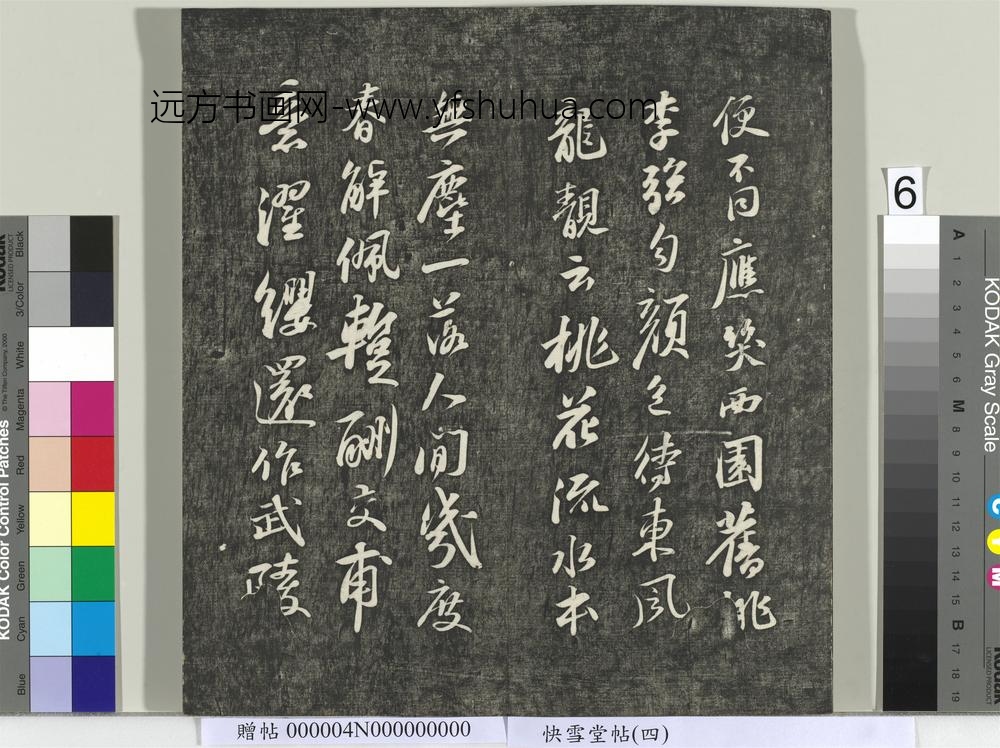 远方书画网-www.yfshuhua.com
便不同應笑西園舊桃
李強勻顏色待東風
龍靚云桃花流水本
無塵一落人間幾度
春解佩暫酬交甫
意濯纓還作武陵
贈帖 000004N000000000
快雪堂帖(四)
6
KODAK Color Control Patches
Blue
Cyan
Green
Yellow
Red
Magenta
White
3/Color
Black
© The Tiffen Company, 2000
KODAK Gray Scale
A 1 2 3 4 5 6 M 8 9 10 11 12 13 14 15 B 17 18 19
C
Y
M
Kodak
LICENSED PRODUCT